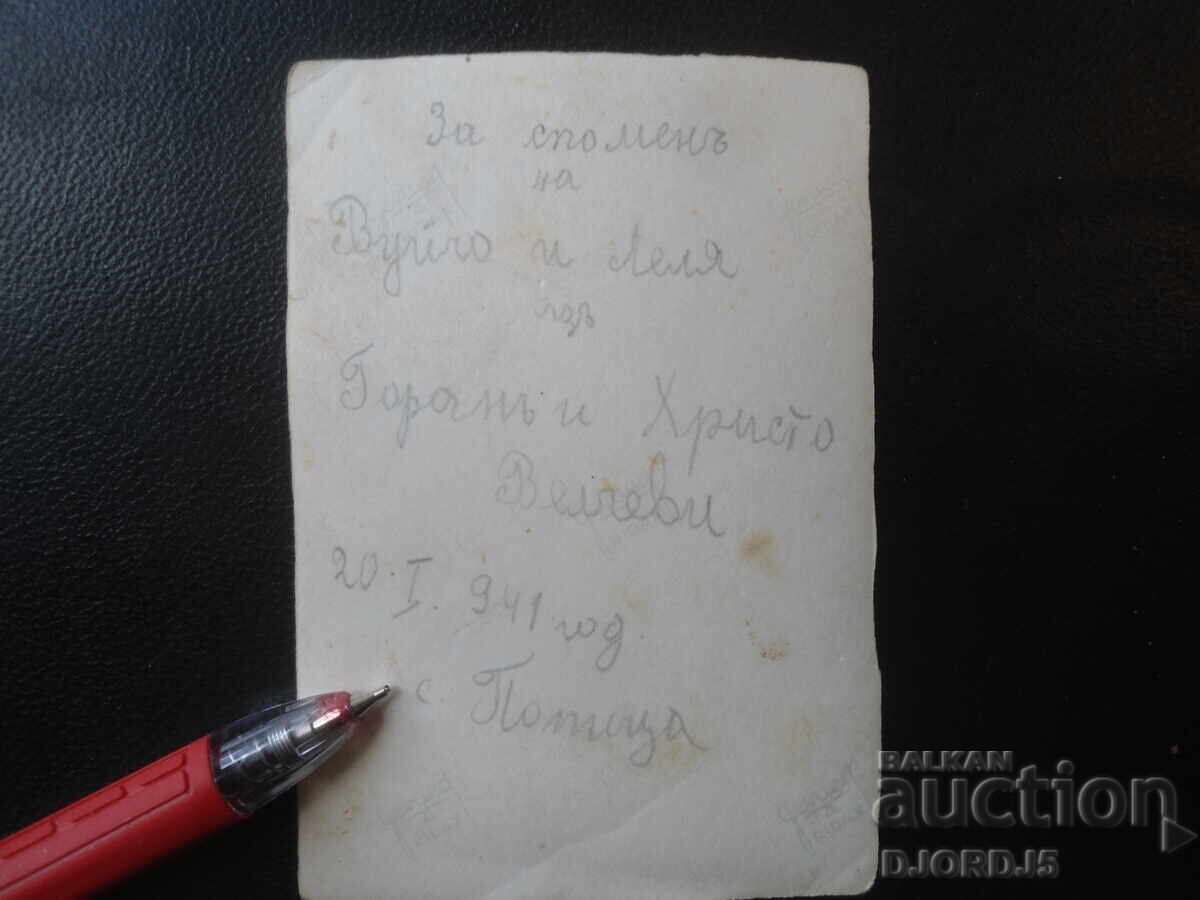 За споменъ
на
Вуйчо и Леля
отъ
Горанъ и Христо
Велчеви
20. I. 941 год.
с. Попица
BALKAN
auction
DJORDJ5